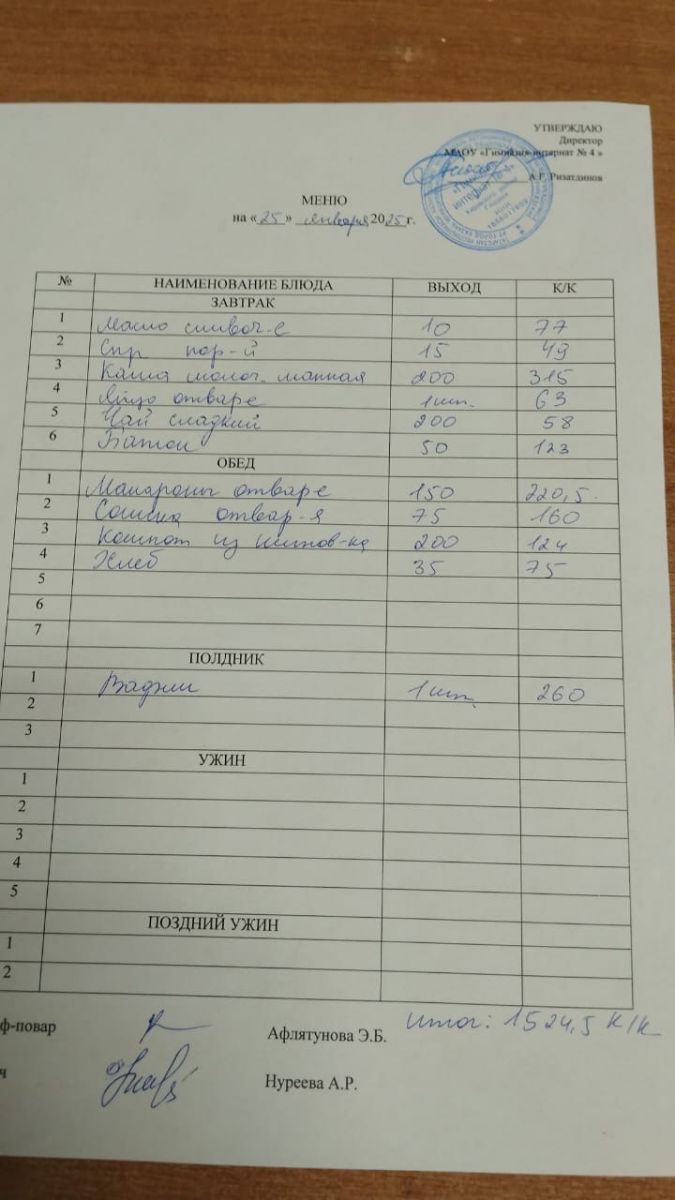 УТВЕРЖДАЮ
Директор
МАОУ «Гимназия-интернат № 4 »
А.Г. Ризатдинов
МЕНЮ
на « 25 » января 2025 г.
№ НАИМЕНОВАНИЕ БЛЮДА ВЫХОД К/К
ЗАВТРАК
1 Масло сливоч-е 10 77
2 Сыр пор-й 15 49
3 Каша молоч. манная 200 315
4 Яйцо отваре 1шт. 63
5 Чай сладкий 200 58
6 Батон 50 123
ОБЕД
1 Макароны отваре 150 220,5
2 Сосиска отвар-я 75 160
3 Компот из шипов-ка 200 124
4 Хлеб 35 75
5
6
7
ПОЛДНИК
1 Вафли 1шт. 260
2
3
УЖИН
1
2
3
4
5
ПОЗДНИЙ УЖИН
1
2
ф-повар Афлятунова Э.Б. Итог: 1524,5 К/К
ч Нуреева А.Р.